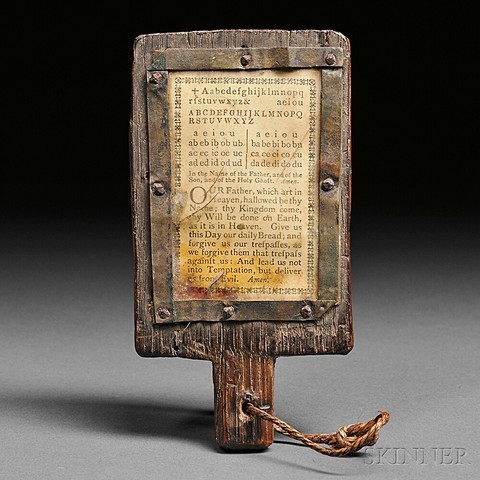 ✝ Aabcdefghijklmnopq
rſstuvwxyz& aeiou
ABCDEFGHIJKLMNOPQ
RSTUVWXYZ
a e i o u a e i o u
ab eb ib ob ub ba be bi bo bu
ac ec ic oc uc ca ce ci co cu
ad ed id od ud da de di do du
In the Name of the Father, and of the
Son, and of the Holy Ghoſt. Amen.
OUR Father, which art in
Heaven, hallowed be thy
Name; thy Kingdom come,
thy Will be done on Earth,
as it is in Heaven. Give us
this Day our daily Bread; and
forgive us our treſpaſſes, as
we forgive them that treſpaſs
againſt us: And lead us not
into Temptation, but deliver
us from Evil. Amen.
SKINNER